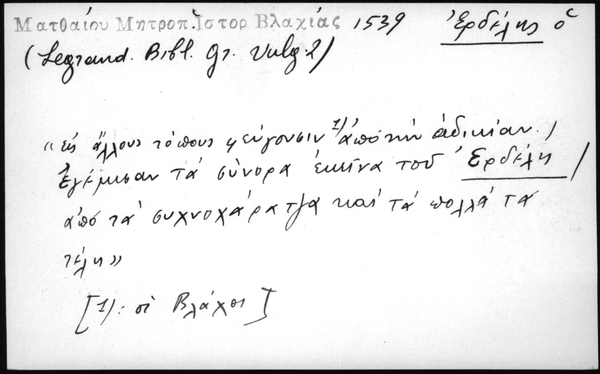 Ματθαίου Μητροπ. Ἱστορ Βλαχίας 1539 Ἐρδέλης ὁ
(Legrand. Bibl. Gr. Vulg. 2)
«εἰς ἄλλους τόπους φεύγουσιν 1) ἀπό τήν ἀδικίαν /
Ἐγέμισαν τά σύνορα ἐκεῖνα τοῦ Ἐρδέλη /
ἀπό τά συχνοχάρατζα καί τά πολλά τά
τέλη»
[1): οἱ Βλάχοι]